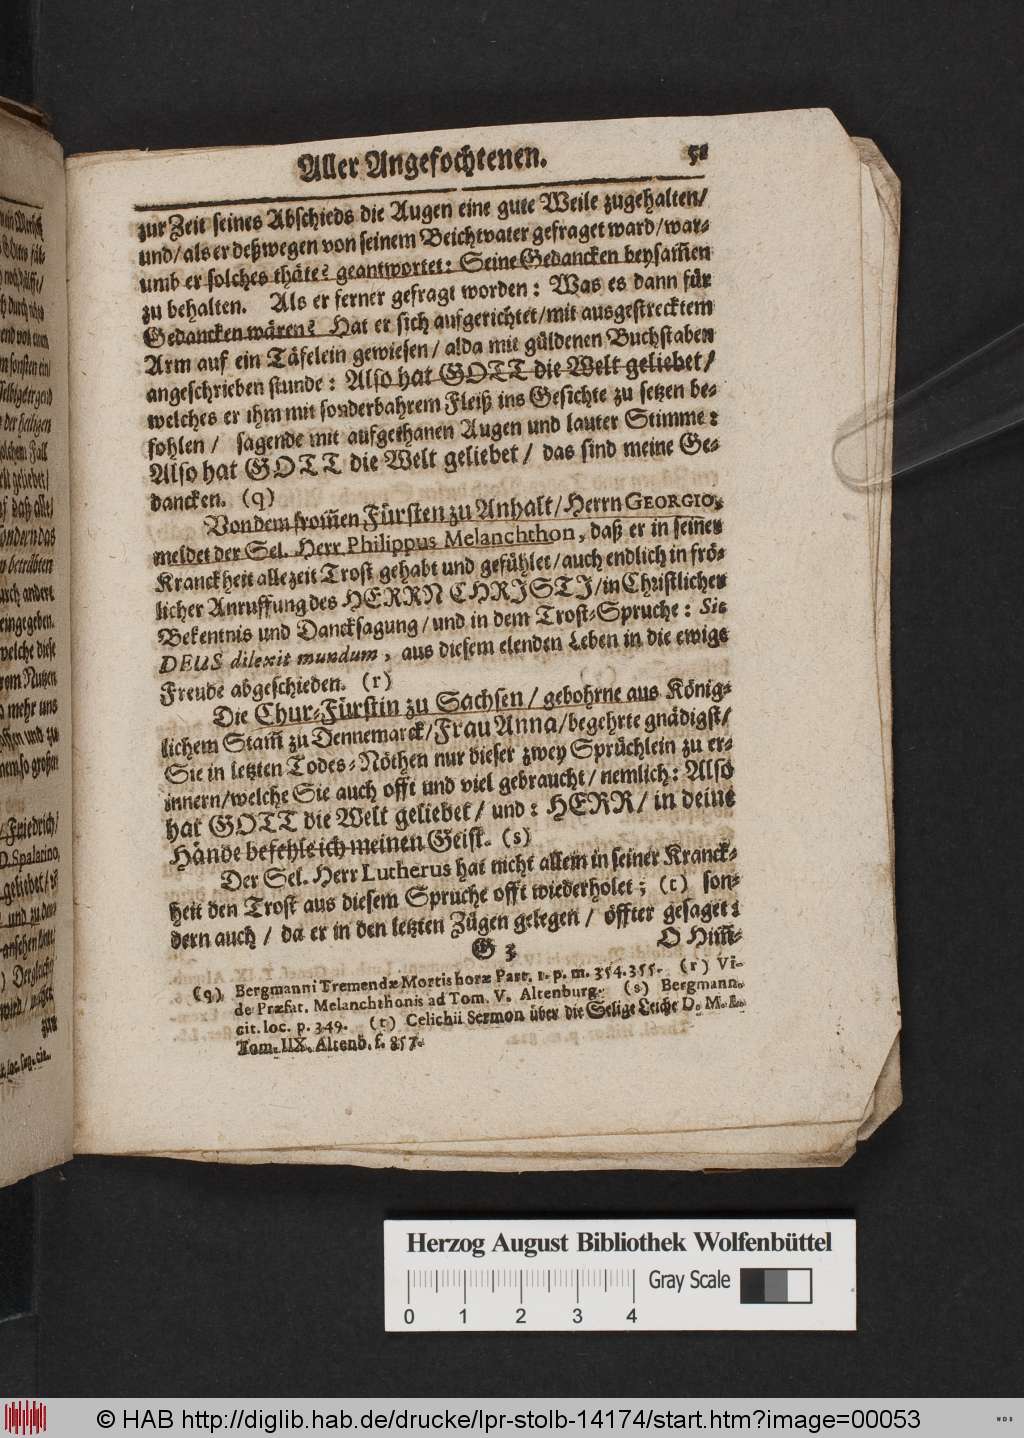 Aller Angefochtenen. 51
zur Zeit seines Abschieds die Augen eine gute Weile zugehalten/
und/als er deßwegen von seinem Beichtvater gefraget ward/war-
umb er solches thäte? geantwortet: Seine Gedancken beysam̃en
zu behalten. Als er ferner gefragt worden: Was es dann für
Gedancken wären? Hat er sich aufgerichtet/mit ausgestrecktem
Arm auf ein Täfelein gewiesen/ alda mit güldenen Buchstaben
angeschrieben stunde: Also hat GOTT die Welt geliebet/
welches er ihm mit sonderbahrem Fleiß ins Gesichte zu setzen be-
fohlen/ sagende mit aufgethanen Augen und lauter Stimme:
Also hat GOTT die Welt geliebet/ das sind meine Ge-
dancken. (q)
Von dem from̃en Fürsten zu Anhalt/Herrn GEORGIO,
meldet der Sel. Herr Philippus Melanchthon, daß er in seiner
Kranckheit allezeit Trost gehabt und gefühlet/auch endlich in frö-
licher Anruffung des HERRN CHRISTI/in Christlicher
Bekentnis und Dancksagung/und in dem Trost-Spruche: Sic
DEUS dilexit mundum, aus diesem elenden Leben in die ewige
Freude abgeschieden. (r)
Die Chur-Fürstin zu Sachsen/ gebohrne aus König-
lichem Stam̃ zu Dennemarck/Frau Anna/begehrte gnädigst/
Sie in letzten Todes-Nöthen nur dieser zwey Sprüchlein zu er-
innern/welche Sie auch offt und viel gebraucht/nemlich: Also
hat GOTT die Welt geliebet/ und: HERR/ in deine
Hände befehle ich meinen Geist. (s)
Der Sel. Herr Lutherus hat nicht allein in seiner Kranck-
heit den Trost aus diesem Spruche offt wiederholet; (t) son-
dern auch/ da er in den letzten Zügen gelegen/ öffter gesaget:
G 3 O Him̃-
(q) Bergmanni Tremendæ Mortis horæ Part. 1. p. m. 354.355. (r) Vi-
de Præfat. Melanchthonis ad Tom. V. Altenburg. (s) Bergmann.
cit. loc. p. 349. (t) Celichii Sermon über die Selige Leiche D. M. L.
Tom. IIX. Altenb. f. 857.
Herzog August Bibliothek Wolfenbüttel
Gray Scale
0 1 2 3 4
© HAB http://diglib.hab.de/drucke/lpr-stolb-14174/start.htm?image=00053